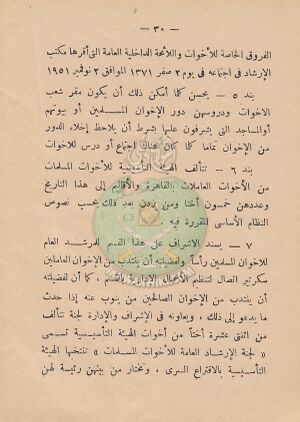 — ٣٠ —
الفروق الخاصة للأخوات واللائحة الداخلية العامة التى أقرها مكتب
الإرشاد فى اجتماعه فى يوم ٢ صفر ١٣٧١ الموافق ٢ نوفمبر ١٩٥١
بند ٥ — يحسن كلما أمكن ذلك أن يكون مقر شعب
الاخوات ودروسهن دور الإخوان المسلمين أو بيوتهم
أو المساجد التى يشرفون عليها بشرط أن يلاحظ إخلاء الدور
من الإخوان تماما كلما كان هناك اجتماع أو درس للاخوات
بند ٦ — تتألف الهيئة التأسيسية للأخوات المسلمات
من الأخوات العاملات بالقاهرة والأقاليم إلى هذا التاريخ
وعددهن خمسون أختا ومن يزدن بعد ذلك بحسب نصوص
النظام الأساسى المقررة فيه .
٧ — يسند الاشراف على هذا القسم للمرشد العام
للاخوان المسلمين رأسا ولفضيلته أن ينتدب من الإخوان العاملين
سكرتير اتصال لتنظيم الأعمال الإدارية بالقسم ، كما أن لفضيلته
أن ينتدب من الإخوان الصالحين من ينوب عنه إذا حدث
ما يدعو إلى ذلك ، ويعاونه فى الإشراف والإدارة لجنة تتألف
من اثنتى عشرة أختاً من أخوات الهيئة التأسيسية تسمى
« لجنة الإرشاد العامة للأخوات المسلمات » تنتخبها الهيئة
التأسيسية بالاقتراع السرى ، وتختار من بينهن رئيسة لهن